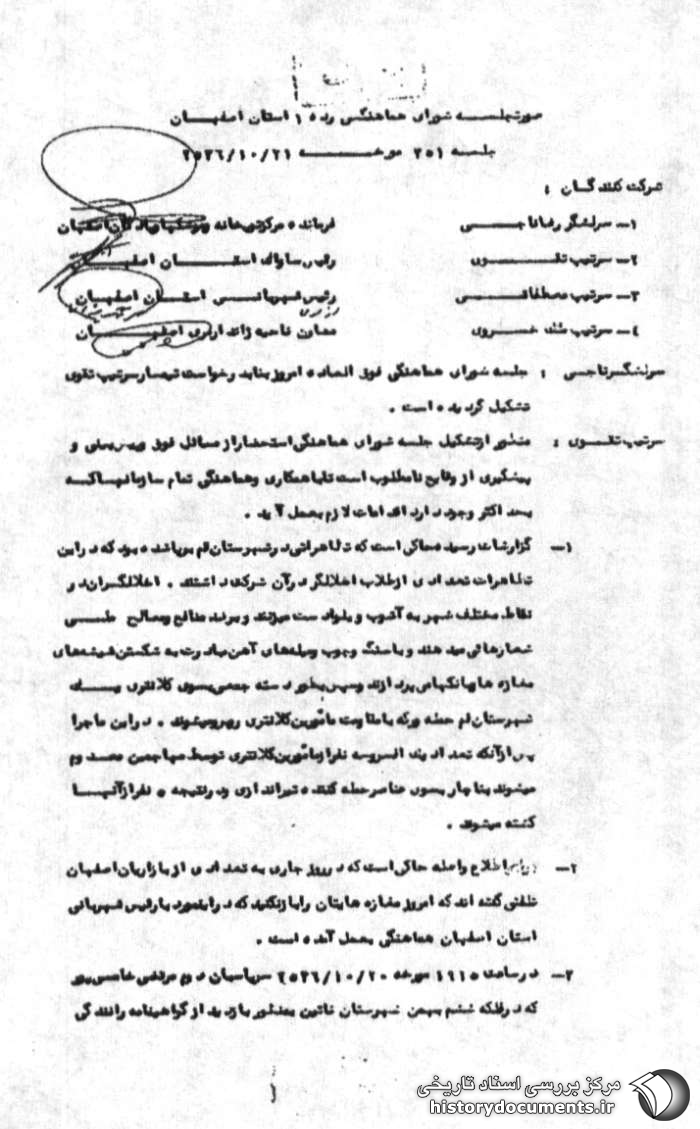 صورتجلسه شورای هماهنگی رده ۱ استان اصفهان
جلسه ۲۵۱ مورخه ۲۵۳۶/۱۰/۲۱
شرکت کنندگان :
۱- سرلشگر رضا ناجی فرمانده مرکز توپخانه و پادگان اصفهان
۲- سرتیپ تقوی رئیس ساواک استان اصفهان
۳- سرتیپ مصطفائی رئیس شهربانی استان اصفهان
۴- سرتیپ خسروی معاون ناحیه ژاندارمری اصفهان
سرلشگر ناجی : جلسه شورای هماهنگی فوق العاده امروز بنابدرخواست تیمسار سرتیپ تقوی
تشکیل گردیده است .
سرتیپ تقوی : منظور از تشکیل جلسه شورای هماهنگی استحضار از مسائل فوق و
پیشگیری از وقایع نامطلوب است تا با همکاری و هماهنگی تمام سازمانهائیکه
بحد اکثر وجود دارد اقدامات لازم بعمل آید .
۱- گزارشات رسیده حاکی است که تظاهراتی در شهرستان قم برپا شده بود که در این
تظاهرات تعدادی از طلاب اخلالگر در آن شرکت داشتند . اخلالگران در
نقاط مختلف شهر به آشوب و بلوا دست میزنند و برضد منافع و مصالح ملی
شعارهائی میدهند و با سنگ و چوب و میله های آهن مبادرت به شکستن شیشه های
مغازه ها و بانکها می پردازند و سپس بطور دسته جمعی بسوی کلانتری یک
شهرستان قم حمله ور که با مقاومت مأمورین کلانتری روبرو میشوند . در این ماجرا
پس از آنکه تعدادی افسر و سه نفر از مأمورین کلانتری توسط مهاجمین مصدوم
میشوند بناچار بسوی عناصر حمله کننده تیراندازی و در نتیجه ۵ نفر از آنها
کشته میشوند .
۲- اطلاع واصله حاکی است که در روز جاری به تعدادی از بازاریان اصفهان
تلفنی گفته اند که امروز مغازه هایتان را باز نکنید که در اینمورد با رئیس شهربانی
استان اصفهان هماهنگی بعمل آمده است .
۳- در ساعت ۱۹۱۵ مورخه ۲۵۳۶/۱۰/۲۰ سرپاسبان دوم مرتضی
که در فلکه ششم بهمن شهرستان نائین بمنظور بازدید از گواهینامه رانندگی
مرکز بررسی اسناد تاریخی
historydocuments.ir